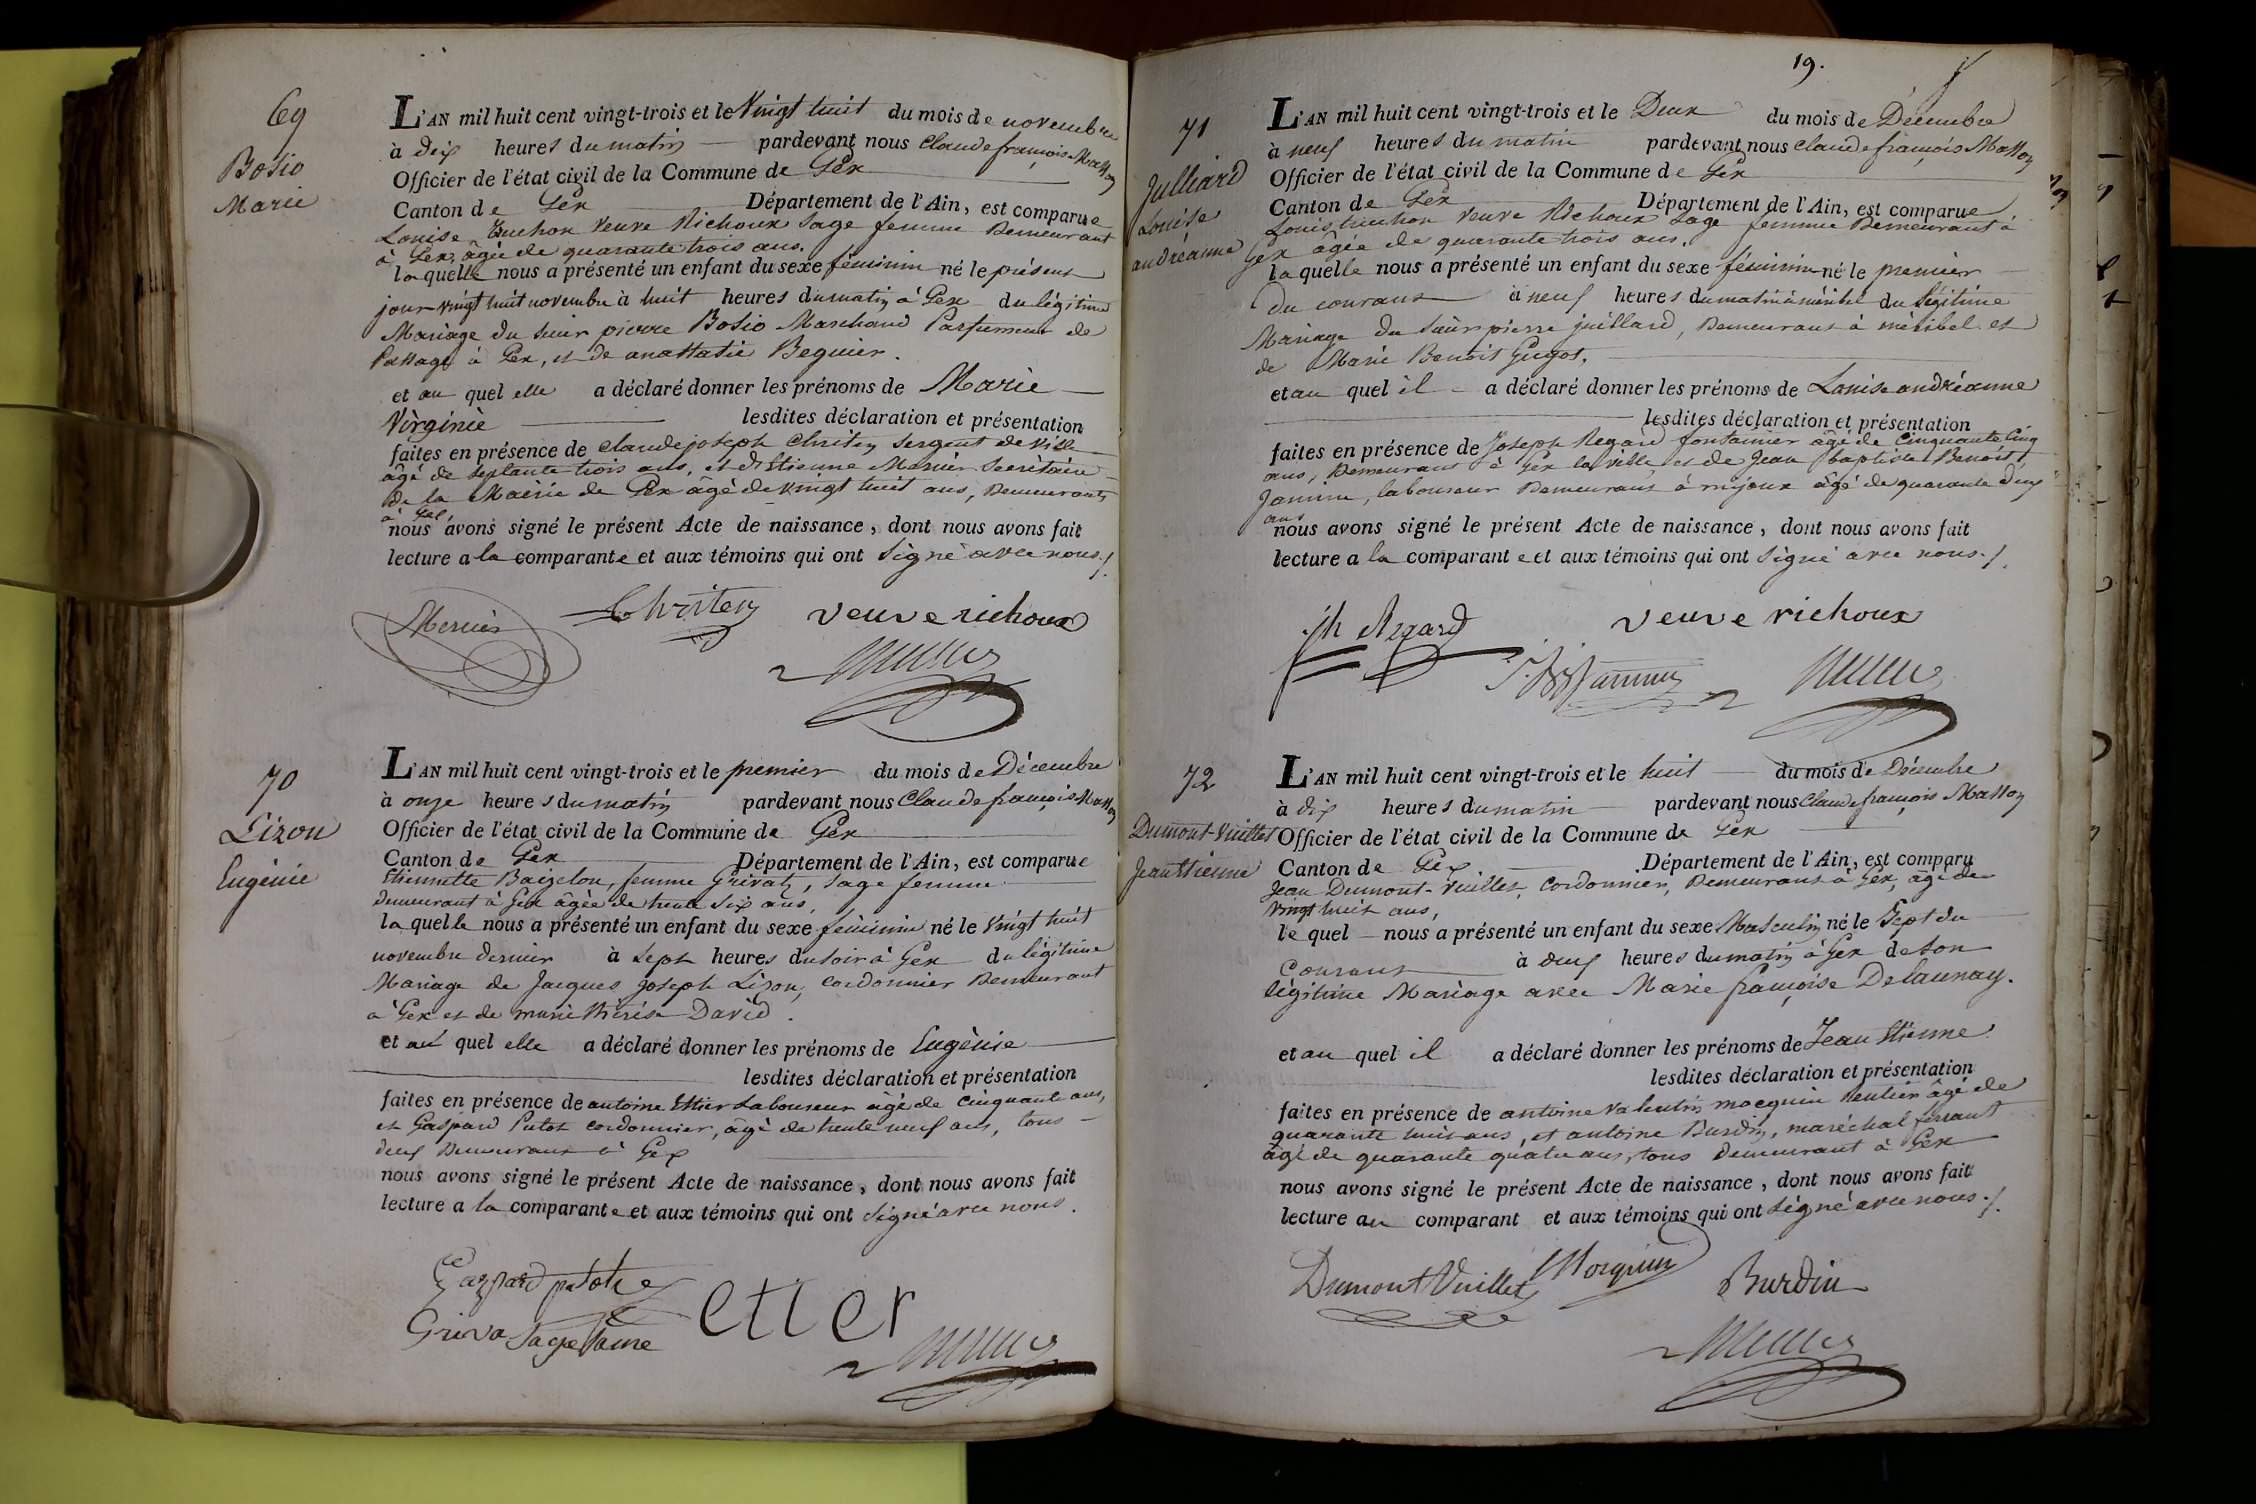 69
Bosio
Marie
L'AN mil huit cent vingt-trois et le Vingt huit du mois de novembre
à dix heures du matin pardevant nous Claude françois Masson
Officier de l'état civil de la Commune de Gex
Canton de Gex Département de l'Ain, est comparue
Louise Truchon veuve Richoux Sage femme Demeurant
à Gex, âgée de quarante trois ans.
laquelle nous a présenté un enfant du sexe féminin né le présent
jour vingt huit novembre à huit heures du matin à Gex du légitime
Mariage du Sieur pierre Bosio Marchand Parfumeur de
Passage à Gex, et de anastasie Beguier.
et au quel elle a déclaré donner les prénoms de Marie
Virginie lesdites déclaration et présentation
faites en présence de claude joseph Christin Sergent de Ville
âgé de septante trois ans, et d'Etienne Mercier Secrétaire
de la Mairie de Gex âgé de vingt huit ans, Demeurants
à Gex,
nous avons signé le présent Acte de naissance, dont nous avons fait
lecture a la comparante et aux témoins qui ont signé avec nous./.
Mercier Christin veuve richoux
70
Lizon
Eugénie
L'AN mil huit cent vingt-trois et le premier du mois de Décembre
à onze heures du matin pardevant nous Claude françois Masson
Officier de l'état civil de la Commune de Gex
Canton de Gex Département de l'Ain, est comparue
Etiennette Baizelon, femme Grivat, Sage femme
demeurant à Gex âgée de trente six ans,
laquelle nous a présenté un enfant du sexe féminin né le Vingt huit
novembre dernier à Sept heures du soir à Gex du légitime
Mariage de Jacques Joseph Lizon, cordonnier Demeurant
à Gex et de marie thérèse David.
et au quel elle a déclaré donner les prénoms de Eugénie
lesdites déclaration et présentation
faites en présence de antoine Ettier Laboureur âgé de cinquante ans,
et Gaspard Putot cordonnier, âgé de trente neuf ans, tous
deux Demeurant à Gex
nous avons signé le présent Acte de naissance, dont nous avons fait
lecture a la comparante et aux témoins qui ont signé avec nous.
Gaspard
Griva Sage fame etier
19.
71
Julliard
Louise
andréanne
L'AN mil huit cent vingt-trois et le Deux du mois de Décembre
à neuf heures du matin pardevant nous claude françois Masson
Officier de l'état civil de la Commune de Gex
Canton de Gex Département de l'Ain, est comparue
Louise truchon veuve Richoux Sage femme Demeurant à
Gex âgée de quarante trois ans.
laquelle nous a présenté un enfant du sexe féminin né le premier
du courant à neuf heures du matin à méribel du légitime
Mariage du Sieur pierre juillard, Demeurant à méribel et
de Marie Benoit Gugot.
et au quel il a déclaré donner les prénoms de Louise andréanne
lesdites déclaration et présentation
faites en présence de Joseph Regard fontainier âgé de Cinquante Cinq
ans, Demeurant à Gex la ville et de Jean baptiste Benoit
Janin, laboureur Demeurant à mijoux âgé de quarante deux
ans
nous avons signé le présent Acte de naissance, dont nous avons fait
lecture a la comparante et aux témoins qui ont signé avec nous./.
jh Regard veuve richoux
72
Dumont-Vuillet
Jean Etienne
L'AN mil huit cent vingt-trois et le huit du mois de Décembre
à dix heures du matin pardevant nous Claude françois Masson
Officier de l'état civil de la Commune de Gex
Canton de Gex Département de l'Ain, est comparu
Jean Dumont-Vuillet, Cordonnier, Demeurant à Gex, âgé de
vingt huit ans,
lequel nous a présenté un enfant du sexe Masculin né le Sept du
Courant à deux heures du matin à Gex de son
légitime Mariage avec Marie françoise Delaunay.
et au quel il a déclaré donner les prénoms de Jean Etienne
lesdites déclaration et présentation
faites en présence de antoine Valentin mocquin Rentier âgé de
quarante huit ans, et antoine Burdin, maréchal ferrant
âgé de quarante quatre ans, tous Demeurant à Gex
nous avons signé le présent Acte de naissance, dont nous avons fait
lecture au comparant et aux témoins qui ont signé avec nous./.
Dumont Vuillet Mocquin Burdin